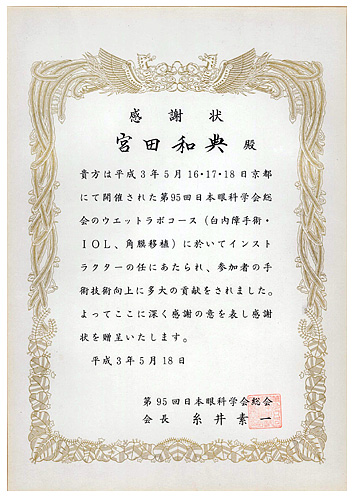 感謝状
宮田和典 殿
貴方は平成3年5月16・17・18日京都
にて開催された第95回日本眼科学会総
会のウエットラボコース（白内障手術・
ＩＯＬ、角膜移植）に於いてインスト
ラクターの任にあたられ、参加者の手
術技術向上に多大の貢献をされました。
よってここに深く感謝の意を表し感謝
状を贈呈いたします。
平成3年5月18日
第95回日本眼科学会総会
会長 糸井素一